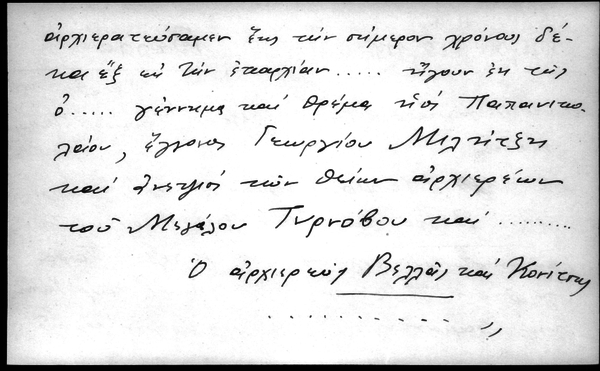 ἀρχιερατεύσαμεν ἕως τὴν σήμερον χρόνους δέ-
κα ἕξ εἰς τὴν ἐπαρχίαν ..... ἤγουν ἐκ τῆς
ὁ ..... γέννημα καὶ θρέμα υἱοί Παπανικο-
λάου, ἔγγονος Γεωργίου
καὶ ἀνεψιοί τῶν θείων ἀρχιερέων
τοῦ Μεγάλου Τυρνόβου καὶ .........
Ὁ ἀρχιερεύς Βελλᾶς καί Κονίτσης
........... ,,